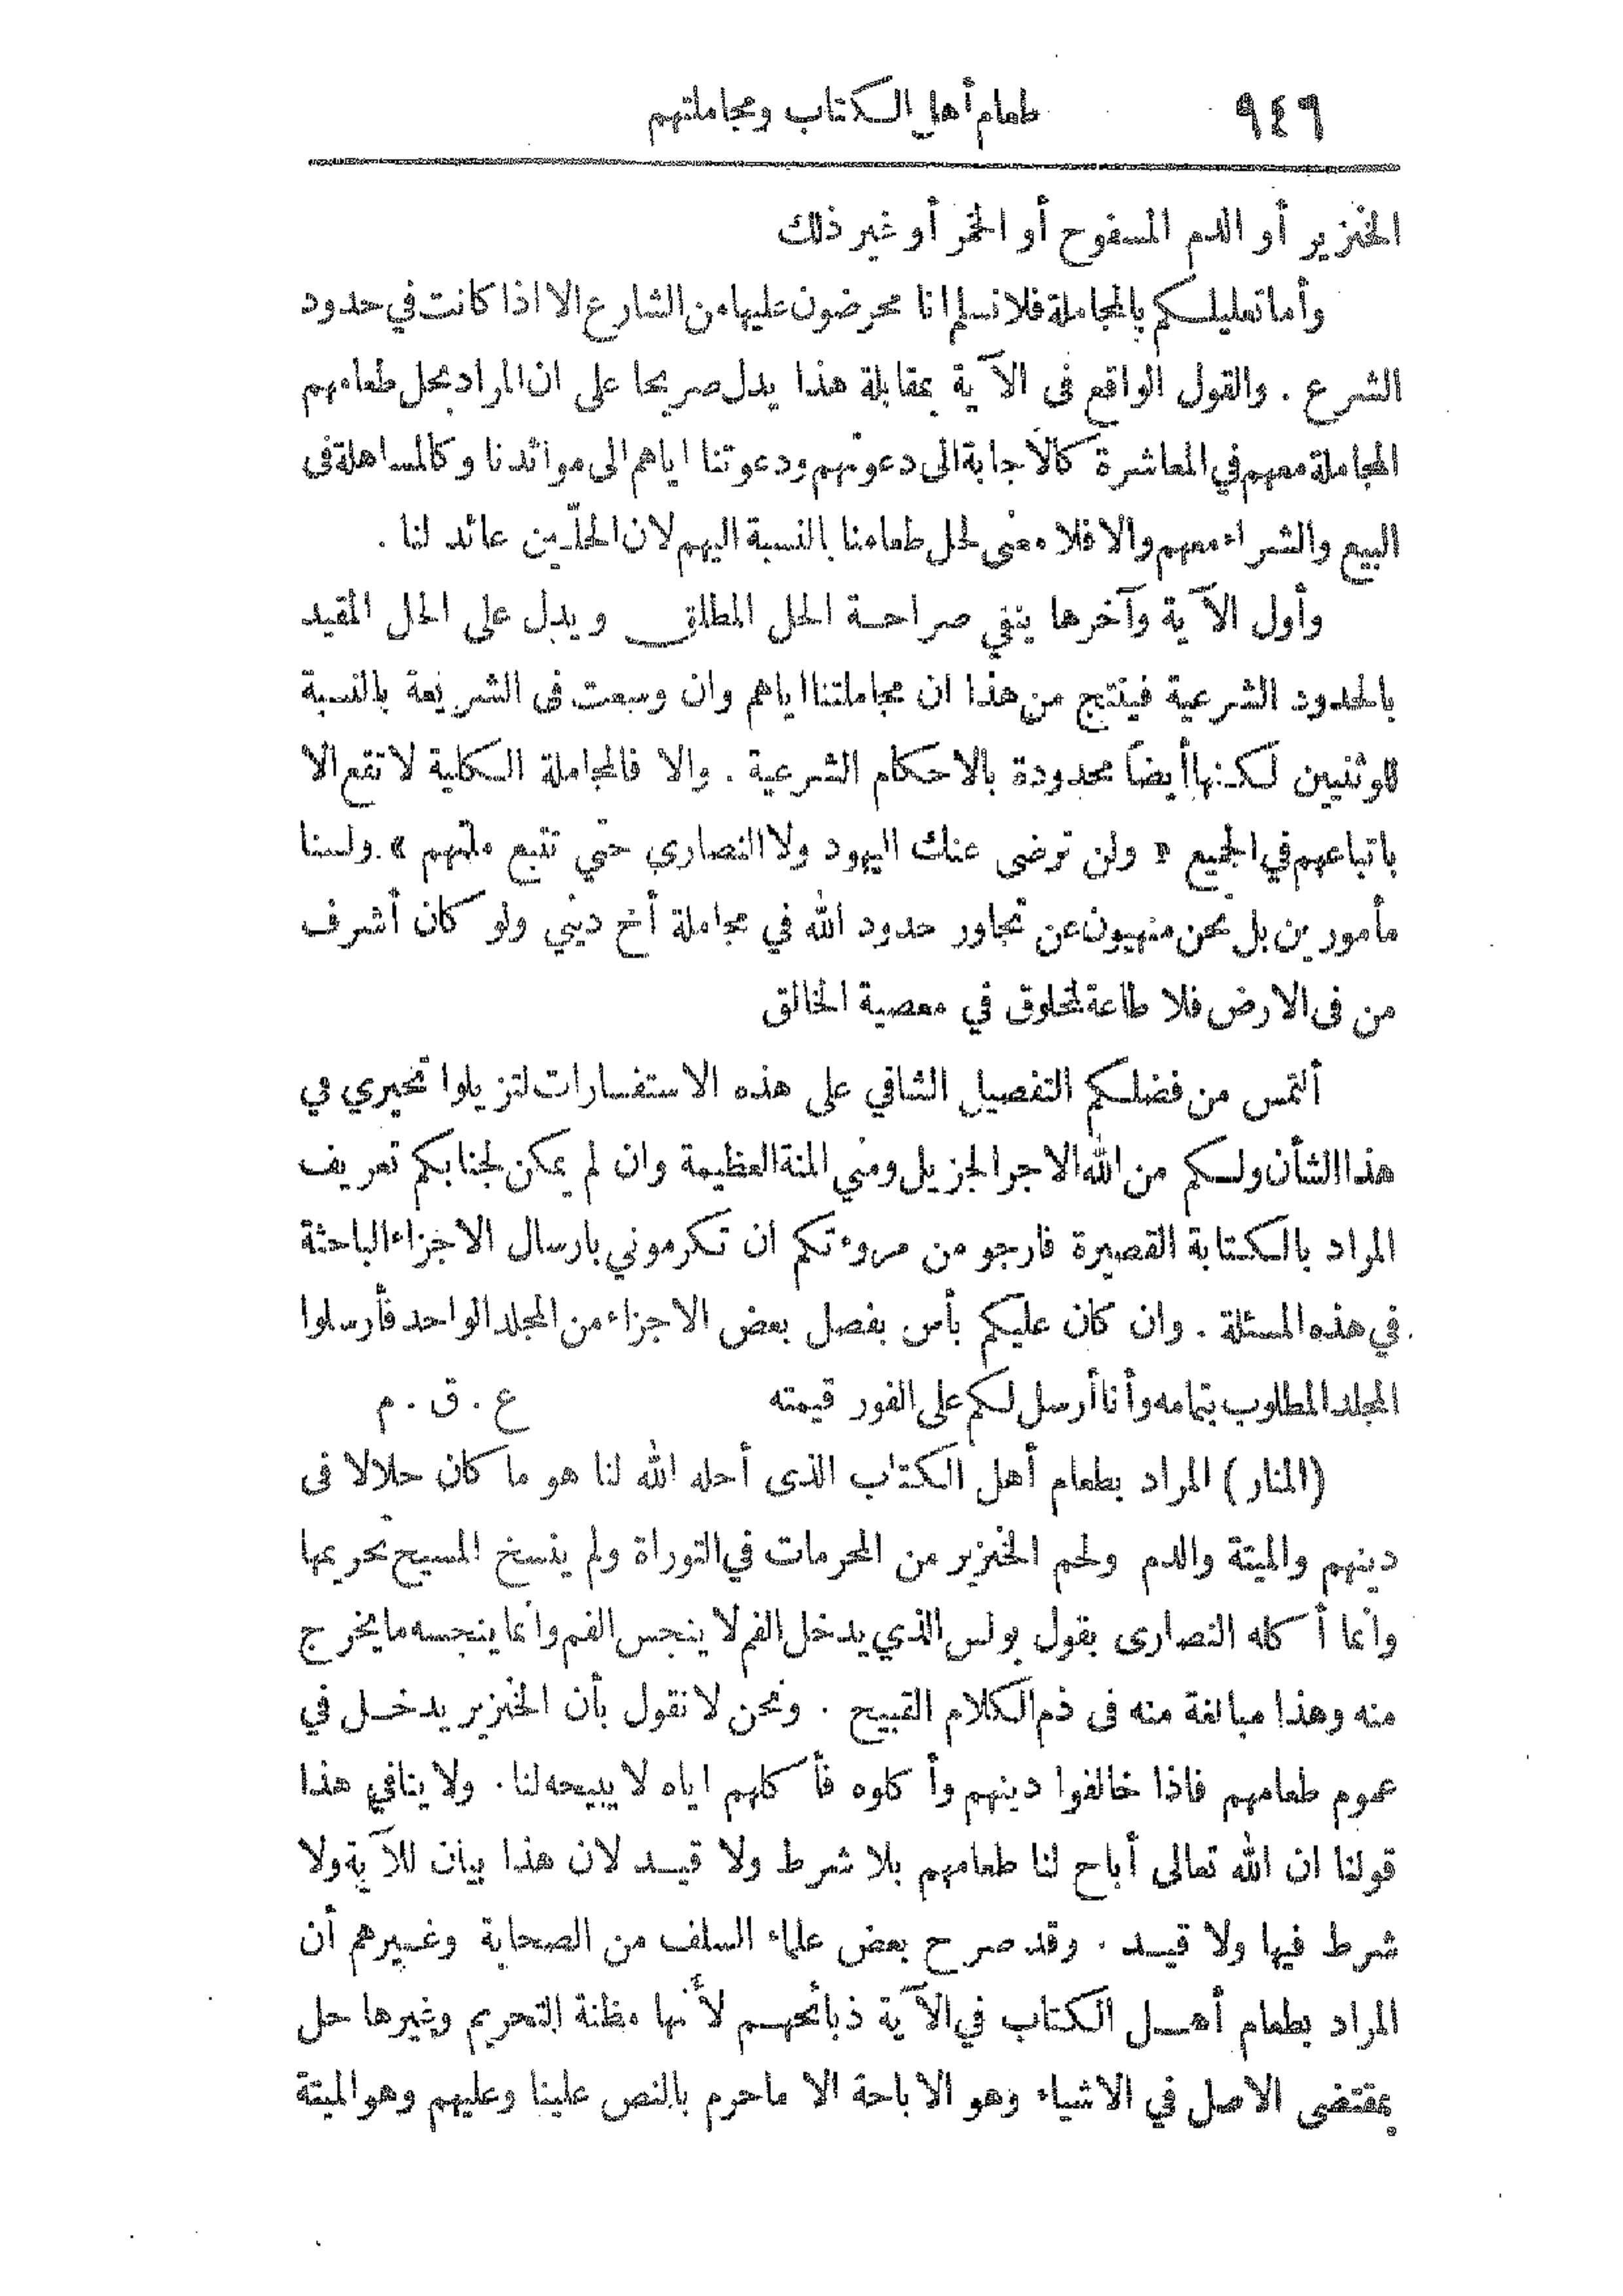 ٩٤٦ طعام أهل الكتاب ومجاملتهم
الخنزير أو الدم المسفوح أو الخمر أو غير ذلك
وأما تعليلكم بالمجاملة فلا نسلم انا محرضون عليها من الشارع الا اذا كانت في حدود
الشرع . والقول الواقع فى الآية بمقابلة هذا يدل صريحا على ان المراد بحل طعامهم
المجاملة معهم في المعاشرة كالاجابة الى دعوتهم ودعوتنا اياهم الى موائدنا وكالمساهلة فى
البيع والشراء معهم والا فلا معنى لحل طعامنا بالنسبة اليهم لان الحلّين عائد لنا .
وأول الآية وآخرها ينفي صراحة الحل المطلق ويدل على الحل المقيد
بالحدود الشرعية فينتج من هذا ان مجاملتنا اياهم وان وسعت فى الشريعة بالنسبة
للوثنيين لكنها أيضاً محدودة بالاحكام الشرعية . والا فالمجاملة الكلية لا تقع الا
باتباعهم في الجميع « ولن ترضى عنك اليهود ولا النصارى حتى تتبع ملتهم » ولسنا
مأمورين بل نحن منهيون عن تجاوز حدود الله في مجاملة أخ ديني ولو كان أشرف
من فى الارض فلا طاعة لمخلوق في معصية الخالق
ألتمس من فضلكم التفصيل الشافي على هذه الاستفسارات لتزيلوا تحيري في
هذا الشأن ولكم من الله الاجر الجزيل ومني المنة العظيمة وان لم يمكن لجنابكم تعريف
المراد بالكتابة القصيرة فارجو من مروءتكم ان تكرموني بارسال الاجزاء الباحثة
في هذه المسئلة . وان كان عليكم بأس بفصل بعض الاجزاء من المجلد الواحد فأرسلوا
المجلد المطلوب بتمامه وأنا أرسل لكم على الفور قيمته ع . ق . م
(المنار) المراد بطعام أهل الكتاب الذى أحله الله لنا هو ما كان حلالا فى
دينهم والميتة والدم ولحم الخنزير من المحرمات في التوراة ولم ينسخ المسيح تحريمها
وانما أكله النصارى بقول بولس الذي يدخل الفم لا ينجس الفم وانما ينجسه ما يخرج
منه وهذا مبالغة منه فى ذم الكلام القبيح . ونحن لا نقول بأن الخنزير يدخل في
عموم طعامهم فاذا خالفوا دينهم وأكلوه فأكلهم اياه لا يبيحه لنا . ولا ينافي هذا
قولنا ان الله تعالى أباح لنا طعامهم بلا شرط ولا قيد لان هذا بيان للآية ولا
شرط فيها ولا قيد . وقد صرح بعض علماء السلف من الصحابة وغيرهم أن
المراد بطعام أهل الكتاب في الآية ذبائحهم لأنها مظنة التحريم وغيرها حل
بمقتضى الاصل في الاشياء وهو الاباحة الا ما حرم بالنص علينا وعليهم وهو الميتة